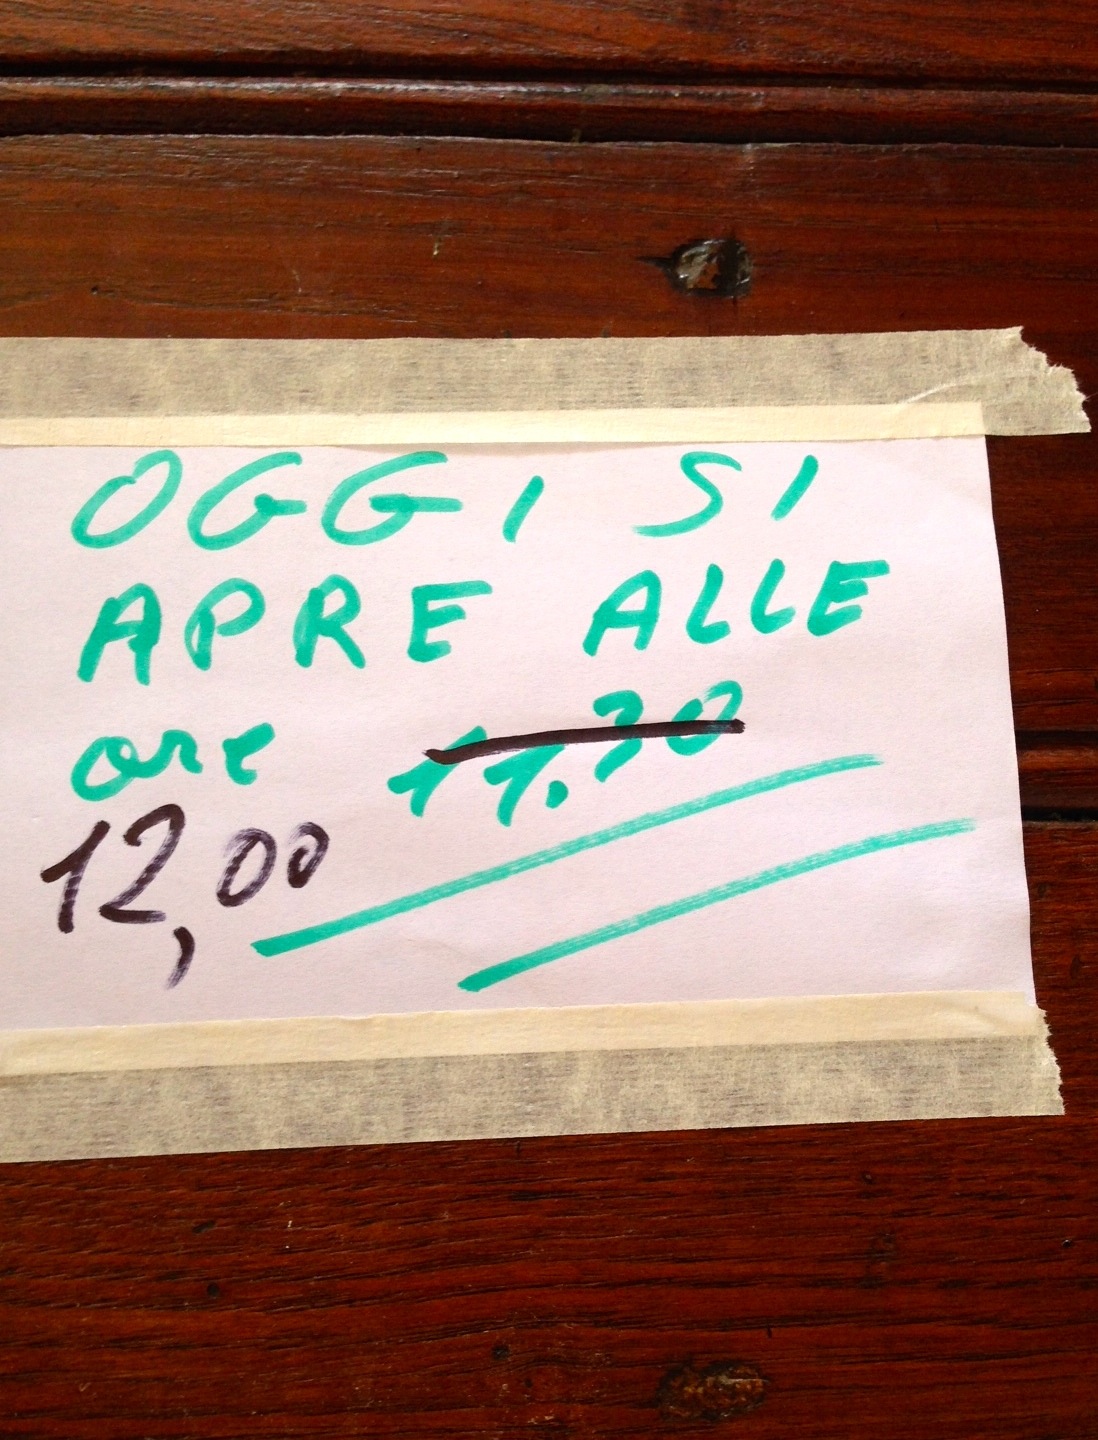 OGGI SI
APRE ALLE
ore 11.30
12,00